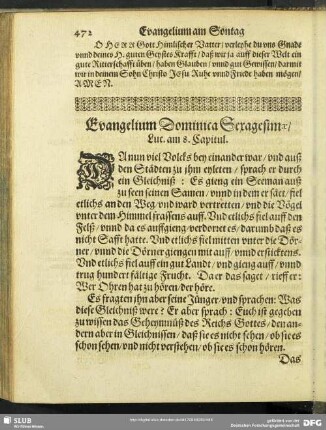 472 Evangelium am Sontag
O HERR Gott Himlischer Vatter / verleyhe du uns Gnade
unnd deines H. guten Geystes Krafft / daß wir ja auff dieser Welt ein
gute Ritterschafft üben / haben Glauben / unnd gut Gewissen / darmit
wir in deinem Sohn Christo Jesu Ruhe unnd Friede haben mögen /
AMEN.
Evangelium Dominica Sexagesimæ /
Luc. am 8. Capitul.
DA nun viel Volcks bey einander war / und auß
den Städten zu ihm eyleten / sprach er durch
ein Gleichniß: Es gieng ein Seman auß
zu seen seinen Samen / unnd in dem er säet / fiel
etlichs an den Weg / und ward vertretten / und die Vögel
unter dem Himmel frassens auff. Und etlichs fiel auff den
Felß / unnd da es auffgieng / verdorret es / darumb daß es
nicht Safft hatte. Und etlichs fiel mitten unter die Dör-
ner / unnd die Dörner giengen mit auff / unnd ersticktens.
Und etlichs fiel auff ein gut Landt / und gieng auff / unnd
trug hundert fältige Frucht. Da er das saget / rieff er:
Wer Ohren hat zu hören / der höre.
Es fragten ihn aber seine Jünger / und sprachen: Was
diese Gleichniß were? Er aber sprach: Euch ist gegeben
zu wissen das Geheymnüß des Reichs Gottes / den an-
dern aber in Gleichnissen / daß sie es nicht sehen / ob sie es
schon sehen / und nicht verstehen / ob sie es schon hören.
Das
SLUB
Wir führen Wissen.
gefördert von der
Deutschen Forschungsgemeinschaft
DFG